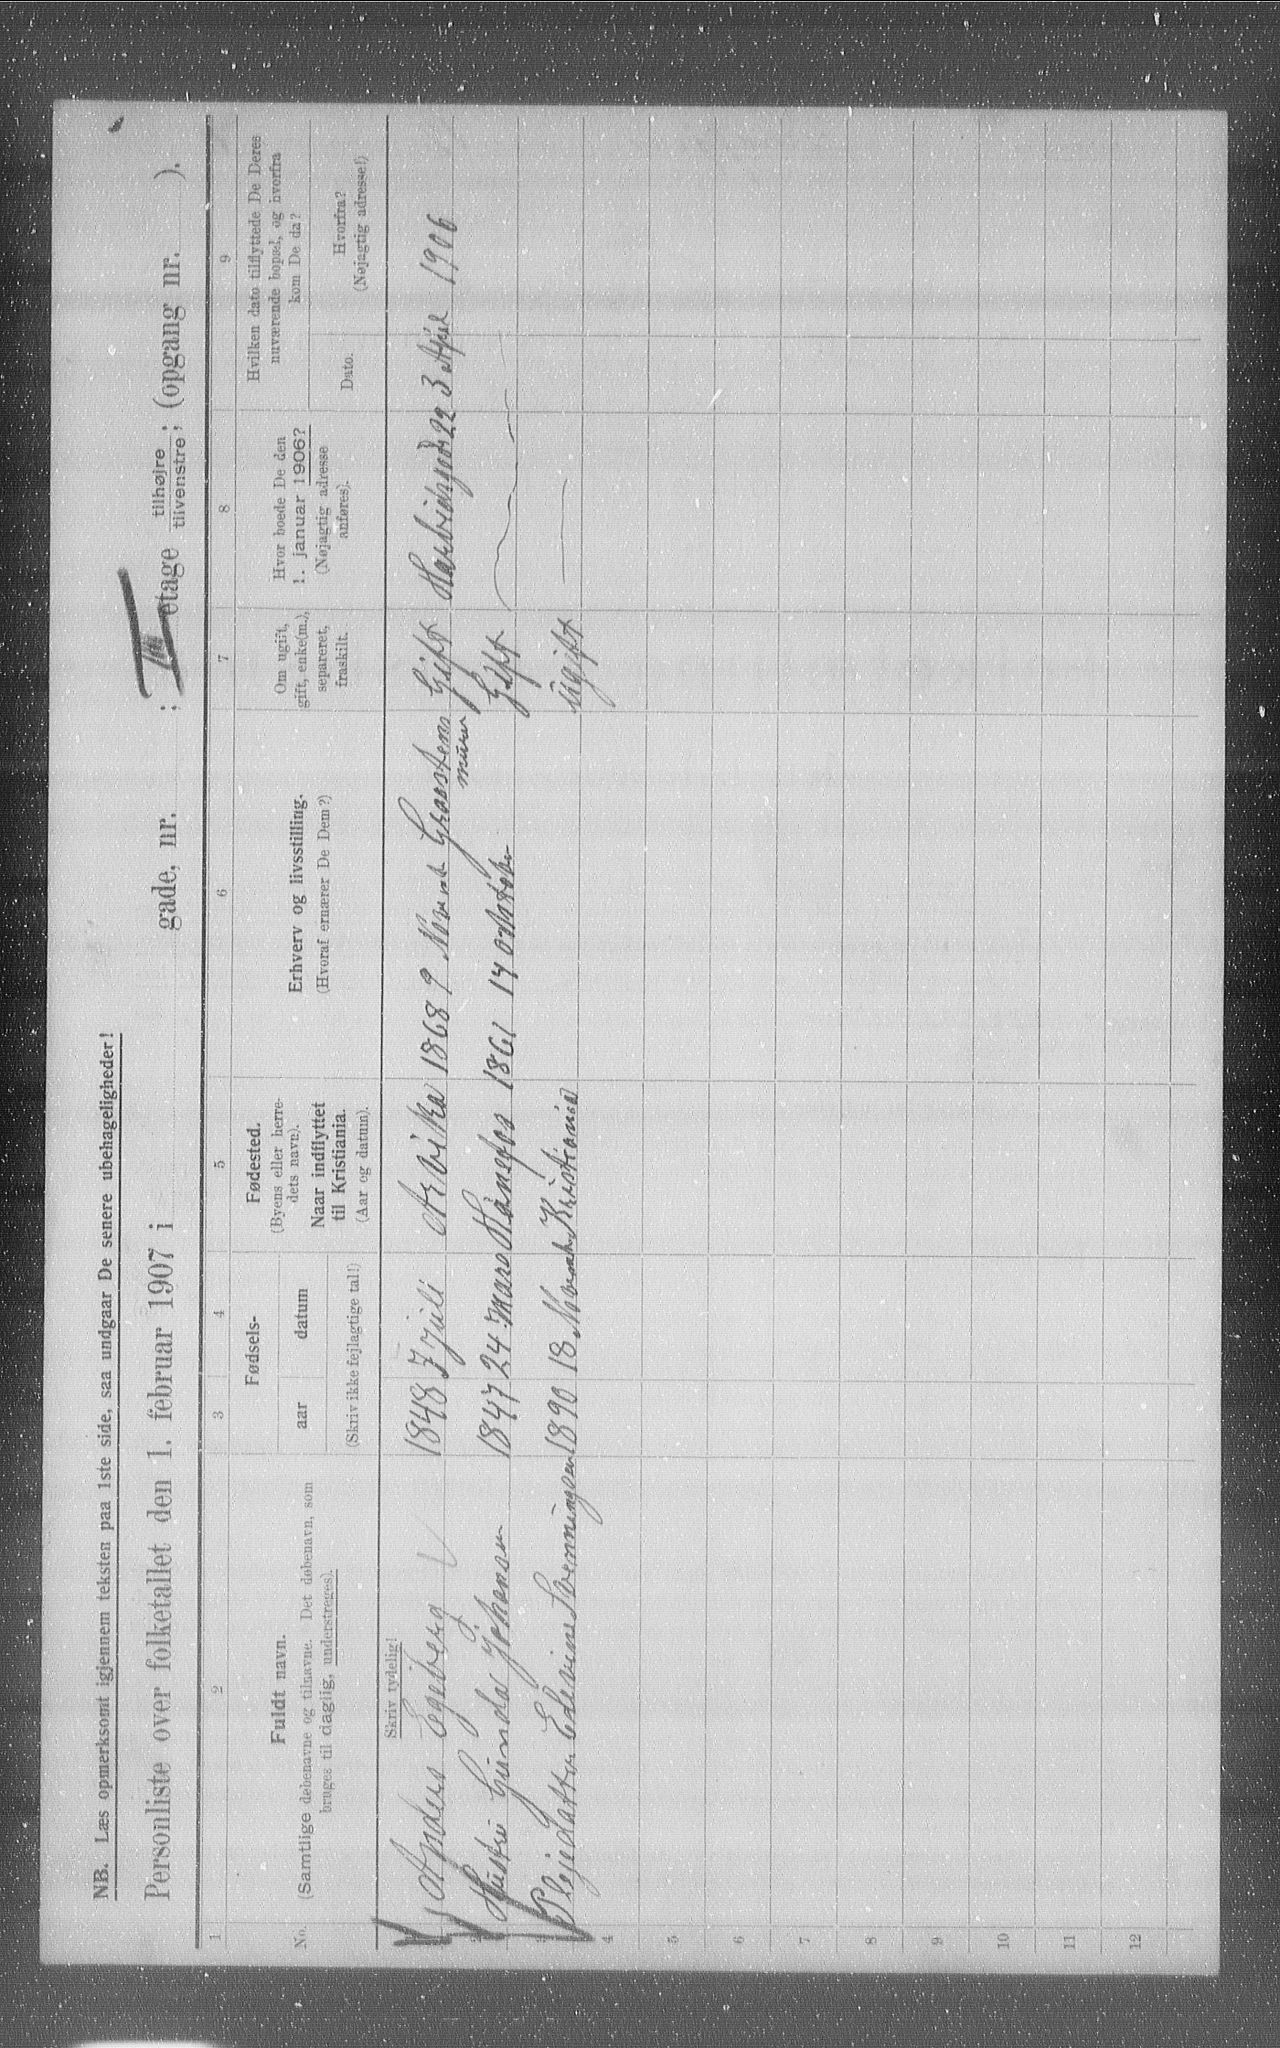 NB. Læs opmerksomt igjennem teksten paa 1ste side, saa undgaar De senere ubehageligheder!
Personliste over folketallet den 1. februar 1907 i gade, nr. ; III etage tilhøjre tilvenstre ; (opgang nr. ).
1 2 3 4 5 6 7 8 9
No.
Fuldt navn.
(Samtlige døbenavne og tilnavne. Det døbenavn, som
bruges til daglig, understreges).
Fødsels-
aar datum
(Skriv ikke fejlagtige tal!)
Fødested.
(Byens eller herre-
dets navn).
Naar indflyttet
til Kristiania.
(Aar og datum).
Erhverv og livsstilling.
(Hvoraf ernærer De Dem?)
Om ugift,
gift, enke(m.),
separeret,
fraskilt.
Hvor boede De den
1. januar 1906?
(Nøjagtig adresse
anføres).
Hvilken dato tilflyttede De Deres
nuværende bopæl, og hvorfra
kom De da?
Dato.
Hvorfra?
(Nøjagtig adresse!)
Skriv tydelig!
1 Anders Egeberg 1848 7 Juli Arvika 1868 9 Novmb Graastens Gift 22 3 April 1906
murer
2 Hustru Gunda Johansen 1847 24 Mars Hønefos 1861 14 October Gift
3 Plejedatter Edevine Svenningsen 1890 18 Novmb Kristiania Ugift
4
5
6
7
8
9
10
11
12